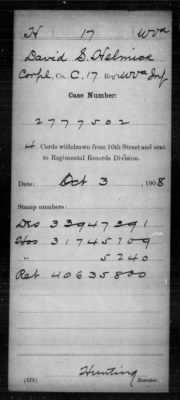 H 17 WVa
David S. Helmick
Corpl, Co. C, 17 Reg't WVa Inf
Case Number:
2777502
4 Cards withdrawn from 10th Street and sent
to Regimental Records Division.
Date: Oct 3, 1908
Stamp numbers:
Des 33947391
Hos 31745709
" 5240
Ret 40635800
Hunting
Searcher.